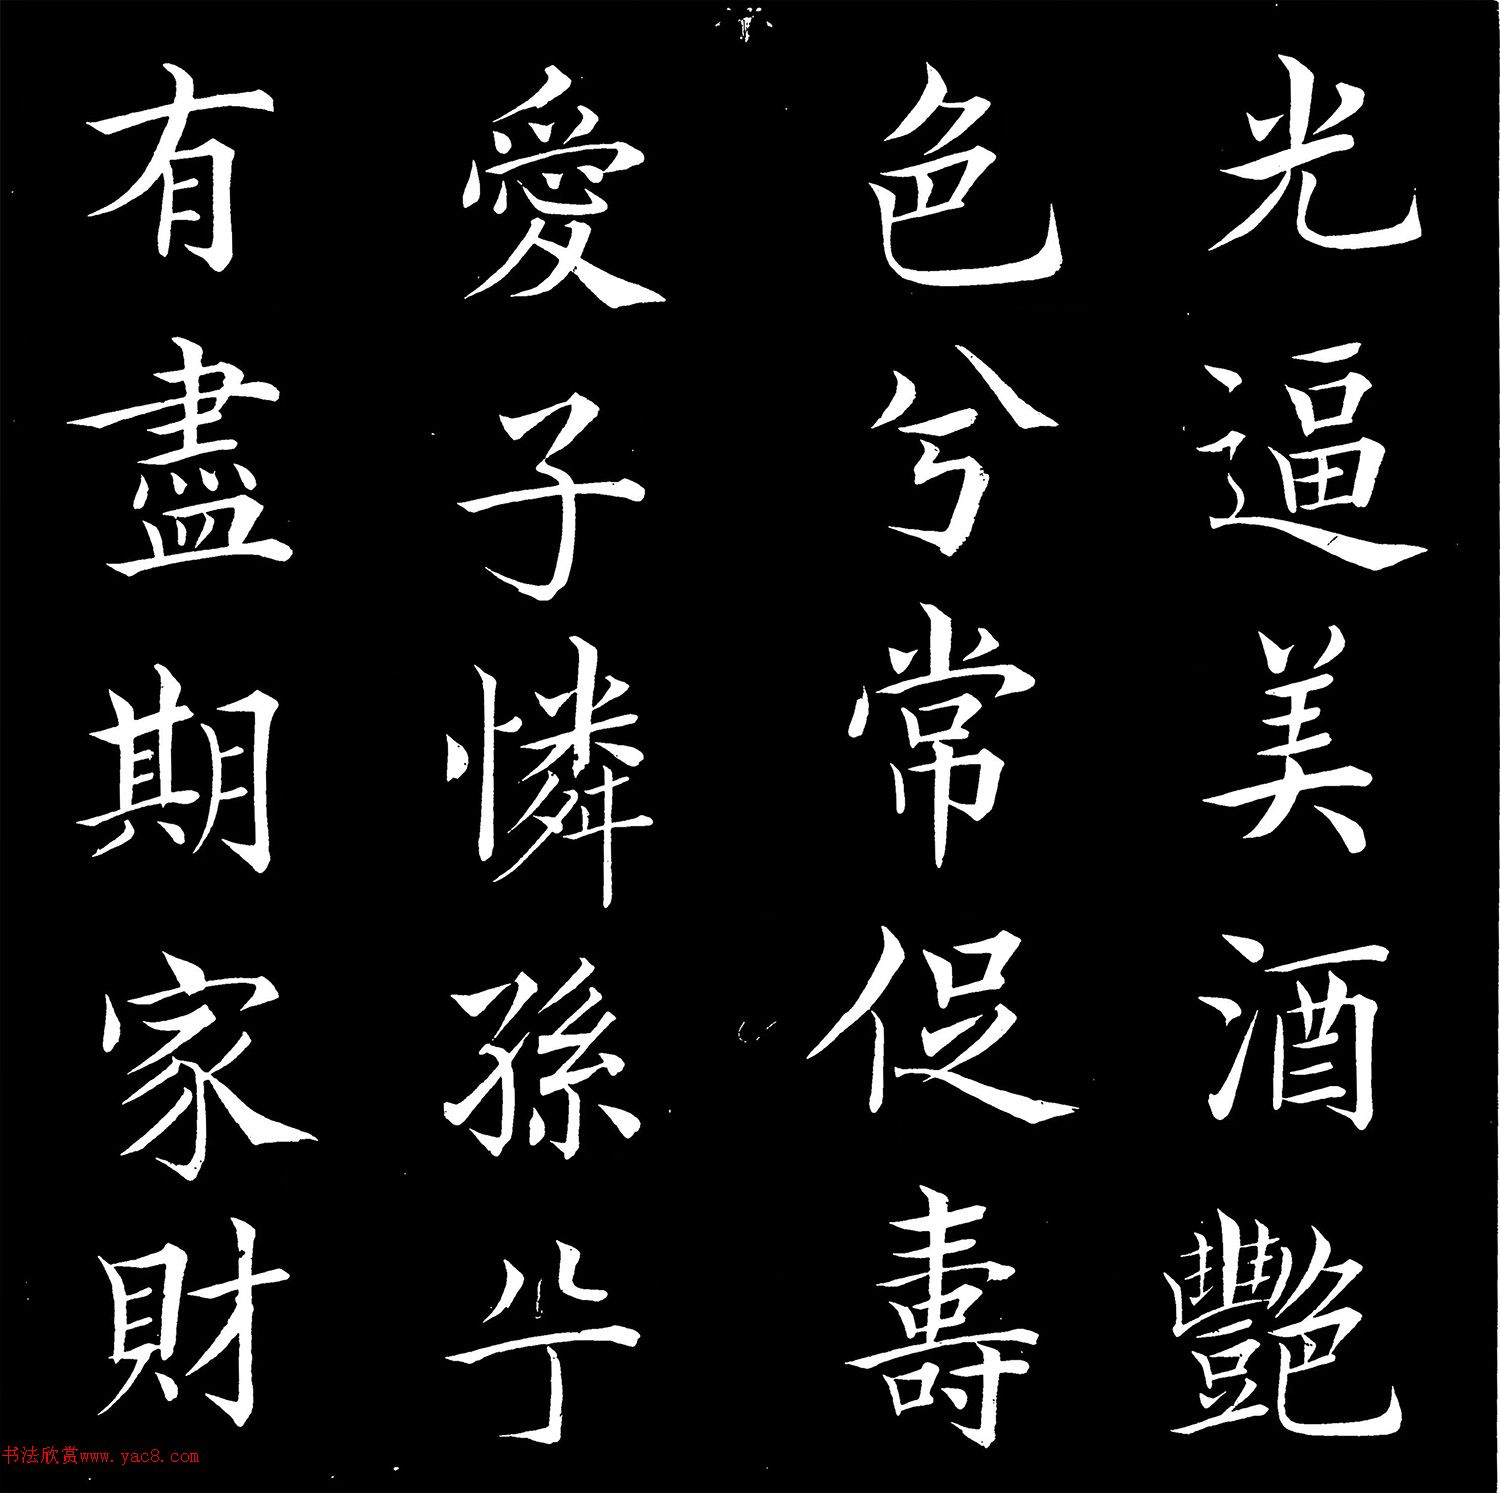 光逼美酒艷
色兮常促壽
愛子憐孫兮
有盡期家財
书法欣赏www.yac8.com